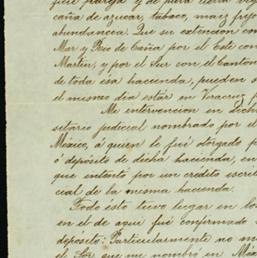 fácil
caña de azucar, tabaco, maiz, frijo
abundancia. Que su extencion con
Mar y Rio de Caña por el Este con
Martin, y por el Sur con el Canton
de toda esa hacienda, pueden
el mismo dia estar en Veracruz
Mi intervencion en dicha
sitario judicial nombrado por el
México, á quien le fué otorgado
ó depósito de dicha hacienda, en
que entabló por un credito escrit
cial de la misma hacienda.
Todo esto tuvo lugar en los
en el de aquí fué confirmado
deposito: Particularmente no me
el Sor que me nombró en Méx